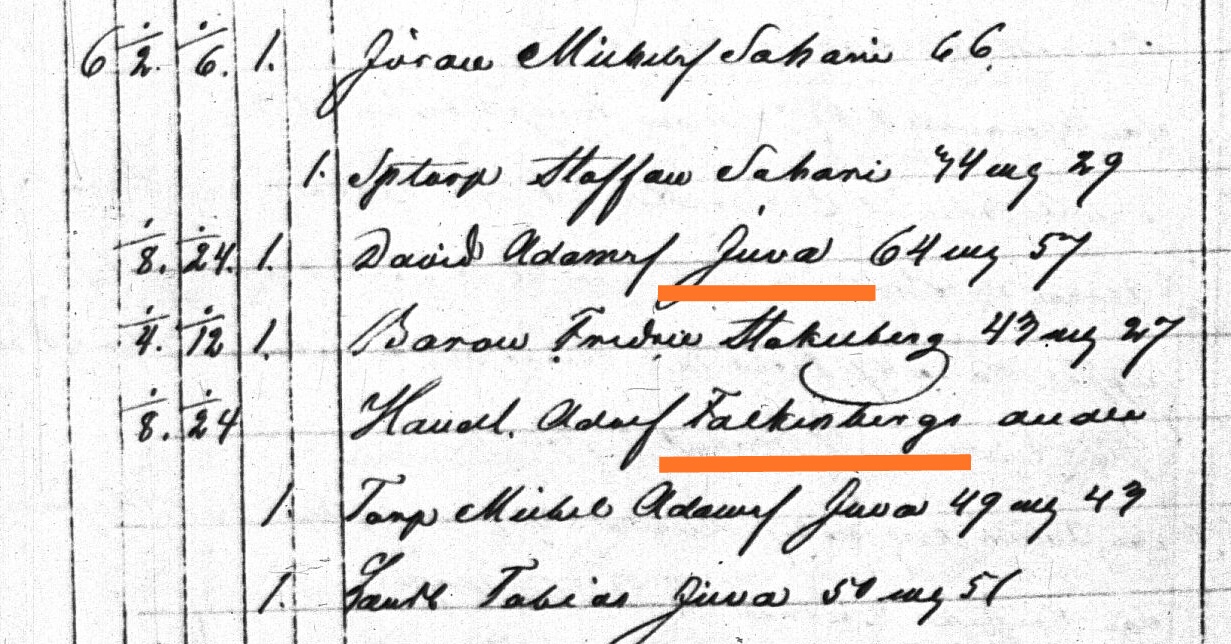 6 2. 6. 1. Jöran Michelsf Sahari 66.
1. Sptorp Staffan Sahari 44 mg 29
8. 24. 1. David Adamsf Juva 64 mg 57
4. 12 1. Baron Fredric Stakelberg 43 mg 27
8. 24 Handl. Adolf Falkenbergs
1. Torp Michel Adamsf Juva 49 mg 43
1. Tobias Juva 50 mg 51